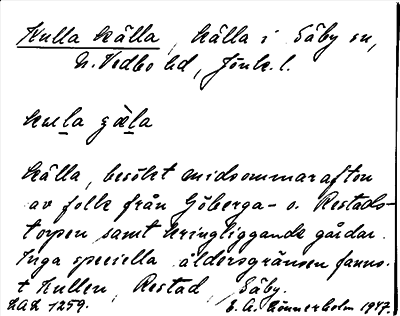 Kulla källa, källa i Säby sn,
N. Vedbo hd, Jönk. l.
källa, besökt midsommarafton
av folk från Göberga- o. Restads-
torpen samt kringliggande gårdar.
Inga speciella åldersgränser fanns.
+ Kullen, Restad, Säby.
1259. E. A. Könnerholm 1947.